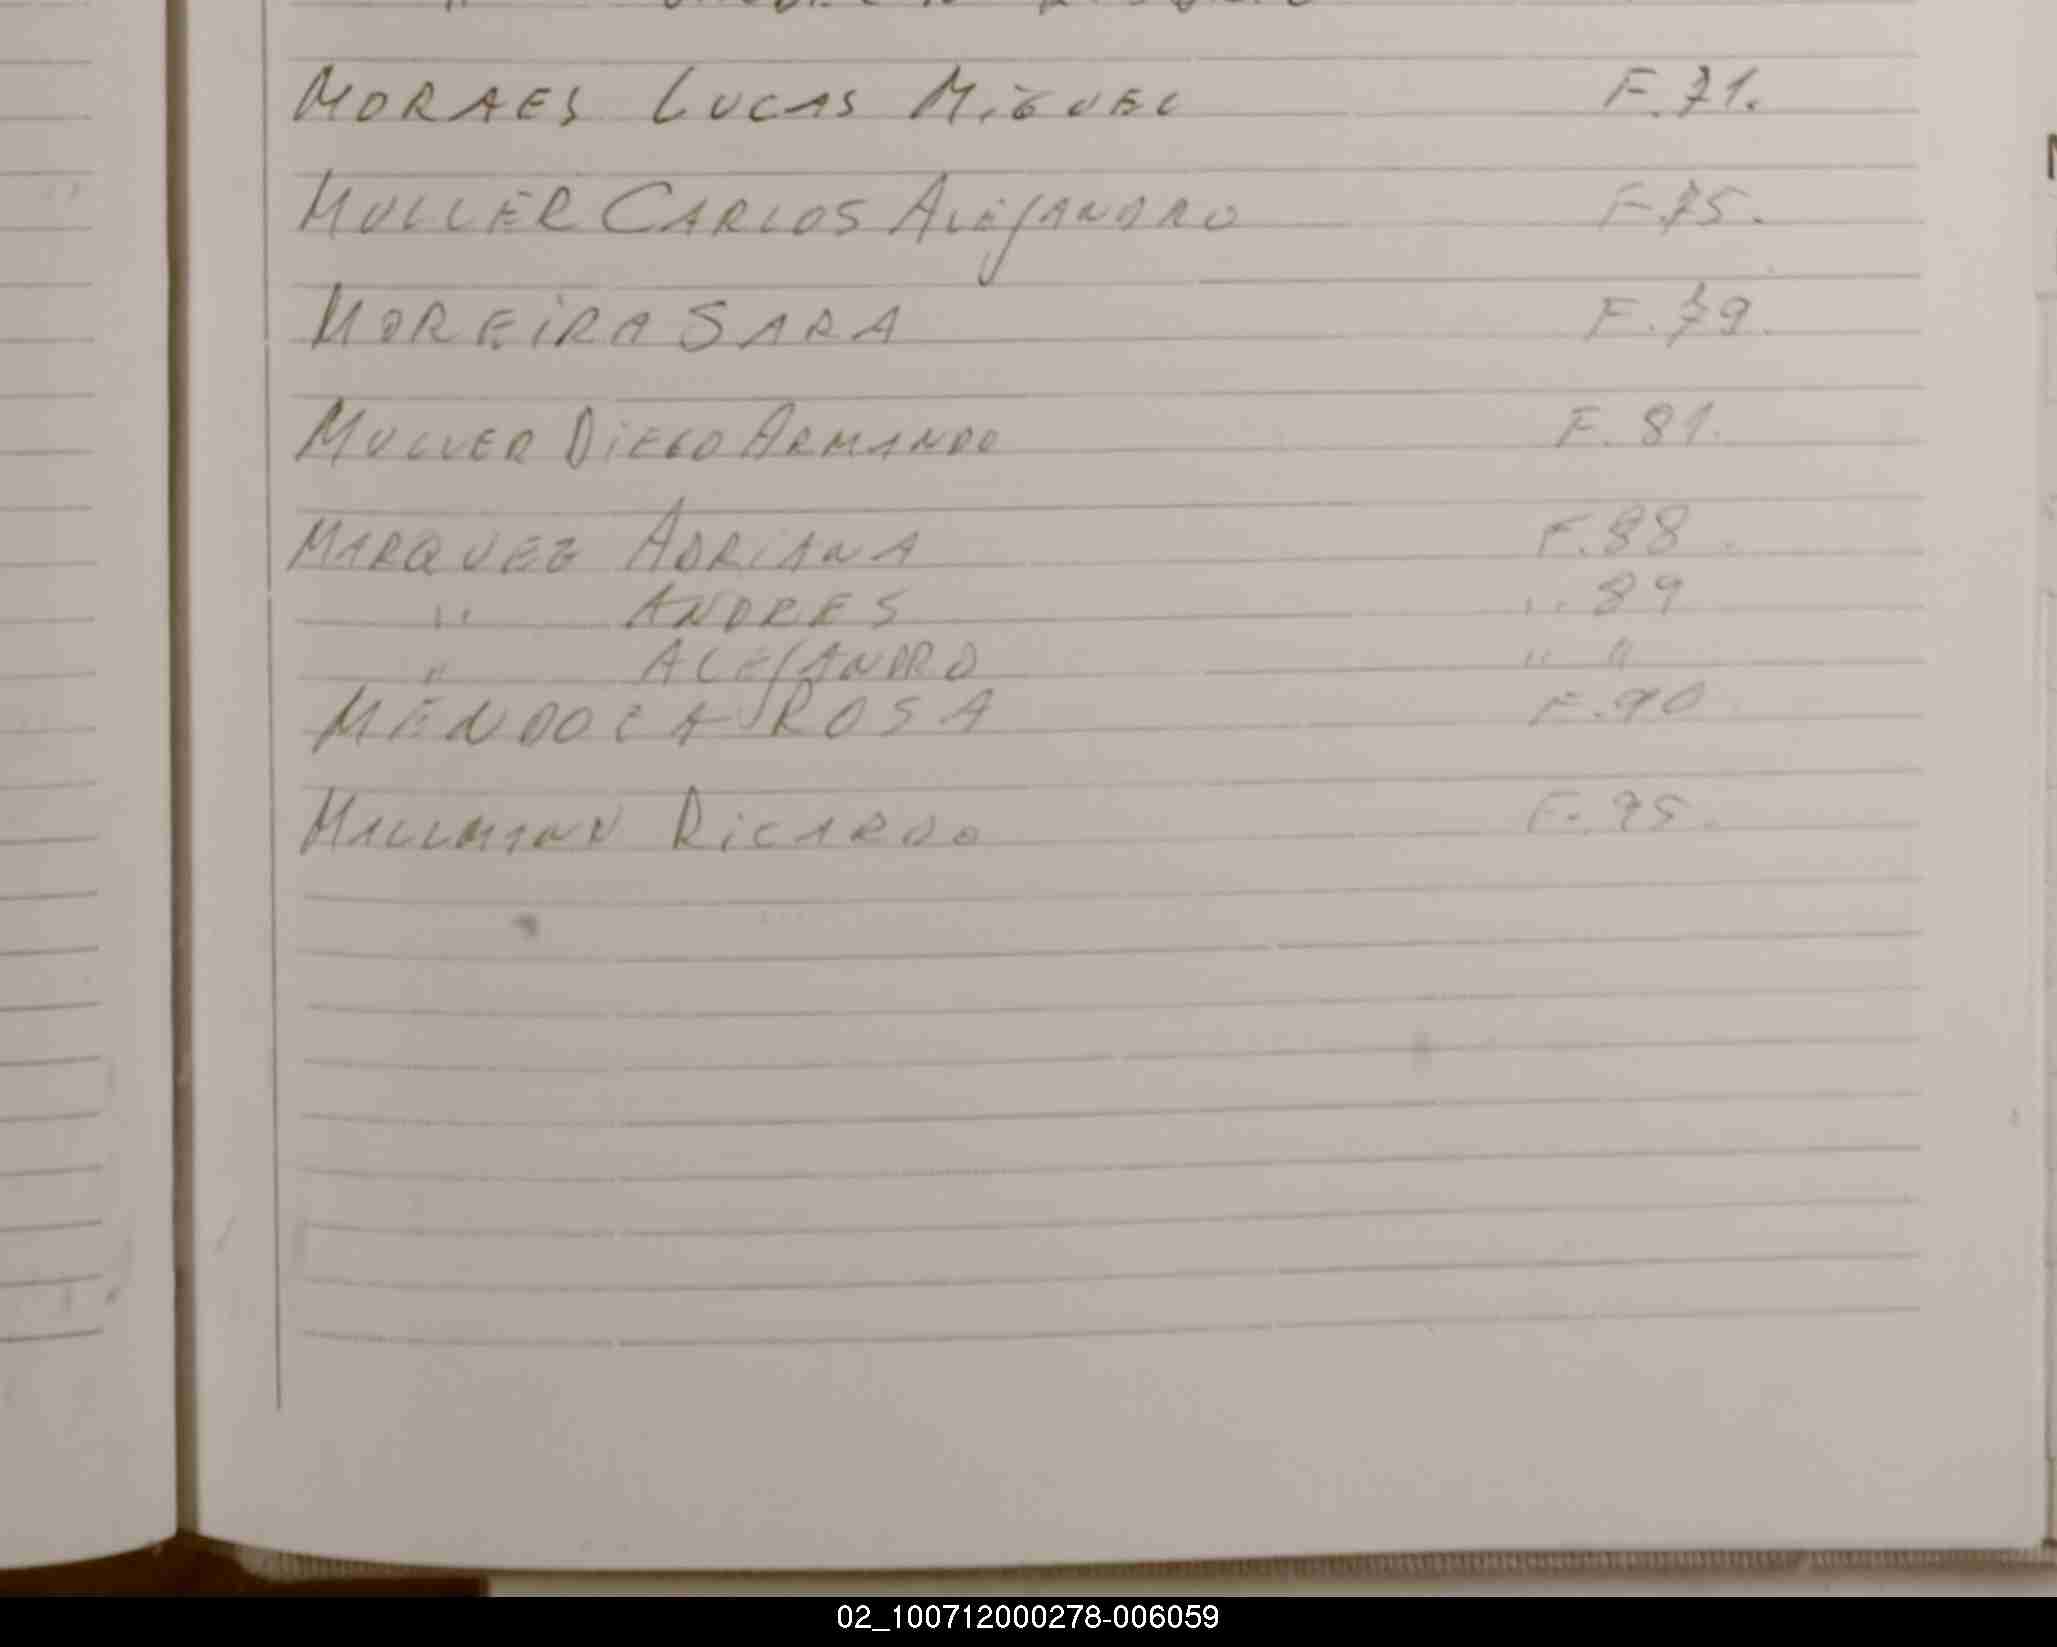 MORAES LUCAS MiGUEL F.71.
MULLER CARLOS ALEJANDRO F.75.
MOREiRA SARA F.79.
MULLER DiEGO ARMANDO F.81.
MARQUEZ ADRIANA F.88.
" ANDRES " 89
" ALEJANDRO " "
MENDOZA ROSA F.90
MALLMANN RiCARDO F.95.
02_100712000278-006059